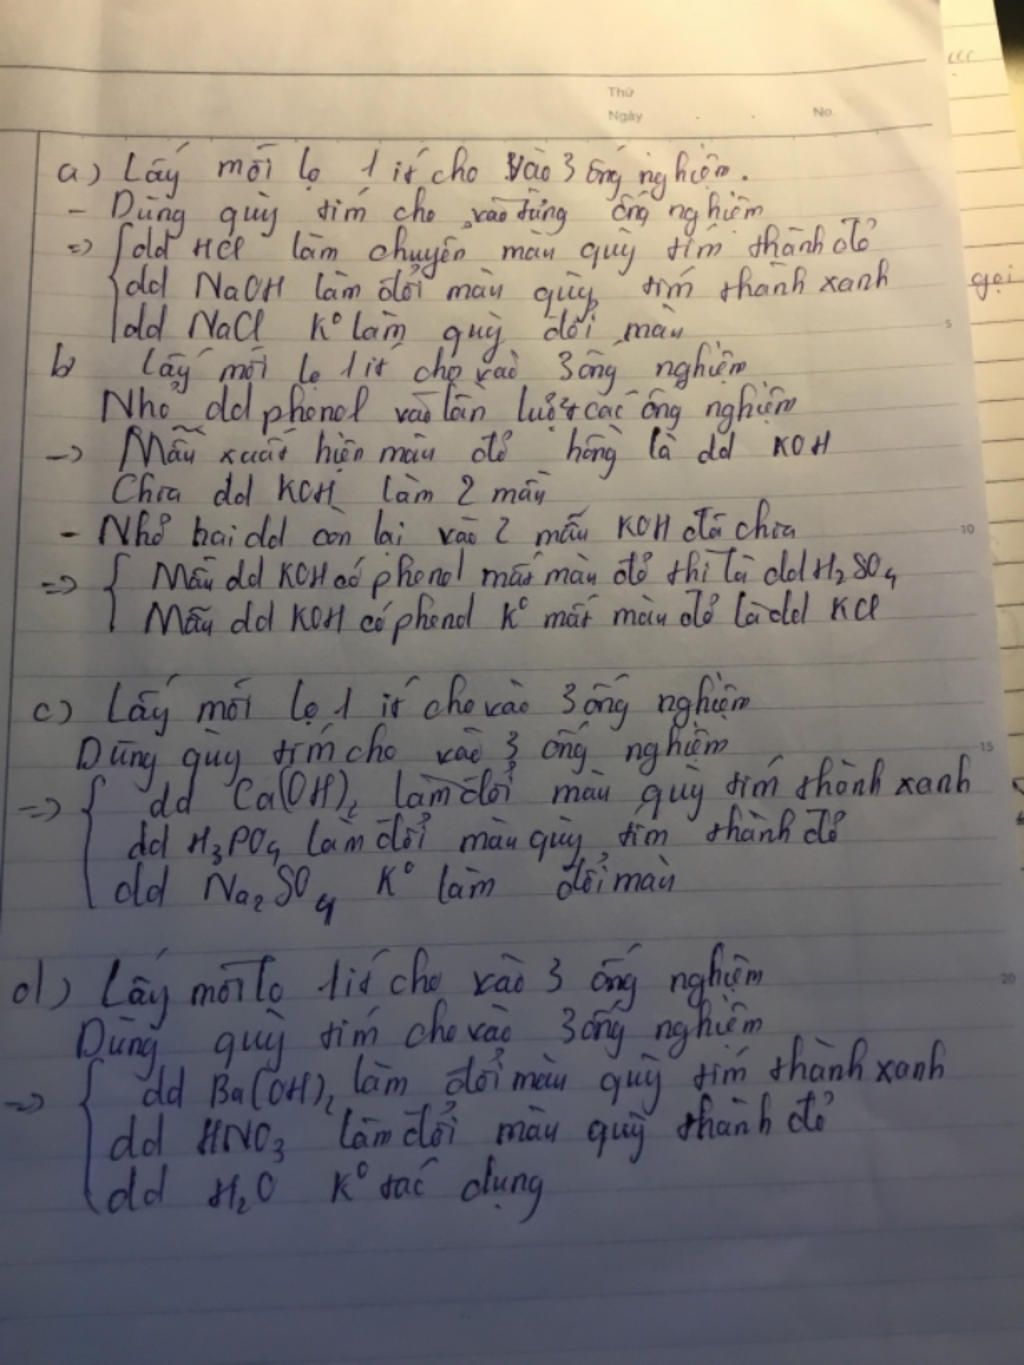 Thứ
Ngày No.
a) Lấy mỗi lọ 1 ít cho vào 3 ống nghiệm.
- Dùng quỳ tím cho vào từng ống nghiệm
=> dd HCl làm chuyển màu quỳ tím thành đỏ
dd NaOH làm đổi màu quỳ tím thành xanh
gọi
dd NaCl K° làm quỳ đổi màu
5
b Lấy mỗi lọ 1 ít cho vào 3 ống nghiệm
Nhỏ dd phenol vào lần lượt các ống nghiệm
-> Mẫu xuất hiện màu đỏ hồng là dd KOH
Chia dd KOH làm 2 mẫu
- Nhỏ hai dd còn lại vào 2 mẫu KOH đã chia
10
=> Mẫu dd KOH có phenol mất màu đỏ thì là dd H₂SO₄
Mẫu dd KOH có phenol K° mất màu đỏ là dd KCl
c) Lấy mỗi lọ 1 ít cho vào 3 ống nghiệm
Dùng quỳ tím cho vào 3 ống nghiệm
15
=> dd Ca(OH)₂ làm đổi màu quỳ tím thành xanh
dd H₃PO₄ làm đổi màu quỳ tím thành đỏ
dd Na₂SO₄ K° làm đổi màu
d) Lấy mỗi lọ 1 ít cho vào 3 ống nghiệm
20
Dùng quỳ tím cho vào 3 ống nghiệm
=> dd Ba(OH)₂ làm đổi màu quỳ tím thành xanh
dd HNO₃ làm đổi màu quỳ thành đỏ
dd H₂O K° tác dụng